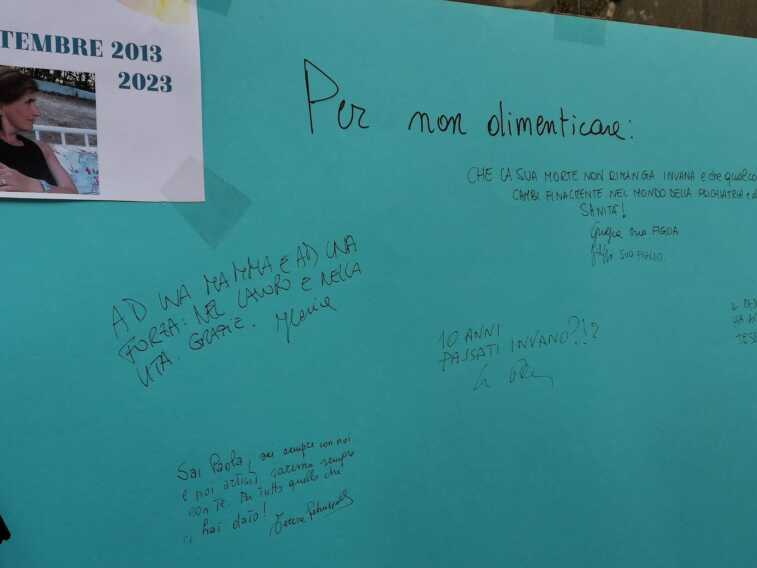 TEMBRE 2013
2023
Per non dimenticare:
CHE LA SUA MORTE NON RIMANGA INVANA e che qualco
CAMBI FINALMENTE NEL MONDO DELLA PSICHIATRIA e d
SANITÀ!
sua FIGLIA
SUO FIGLIO.
AD UNA MAMMA E AD UNA
FORZA: NEL LAVORO E NELLA
VITA. GRAZIE.
10 ANNI
PASSATI INVANO?!?
Sai Paola, sei sempre con noi
e noi artisti saremo sempre
con te. Per tutto quello che
ci hai dato!